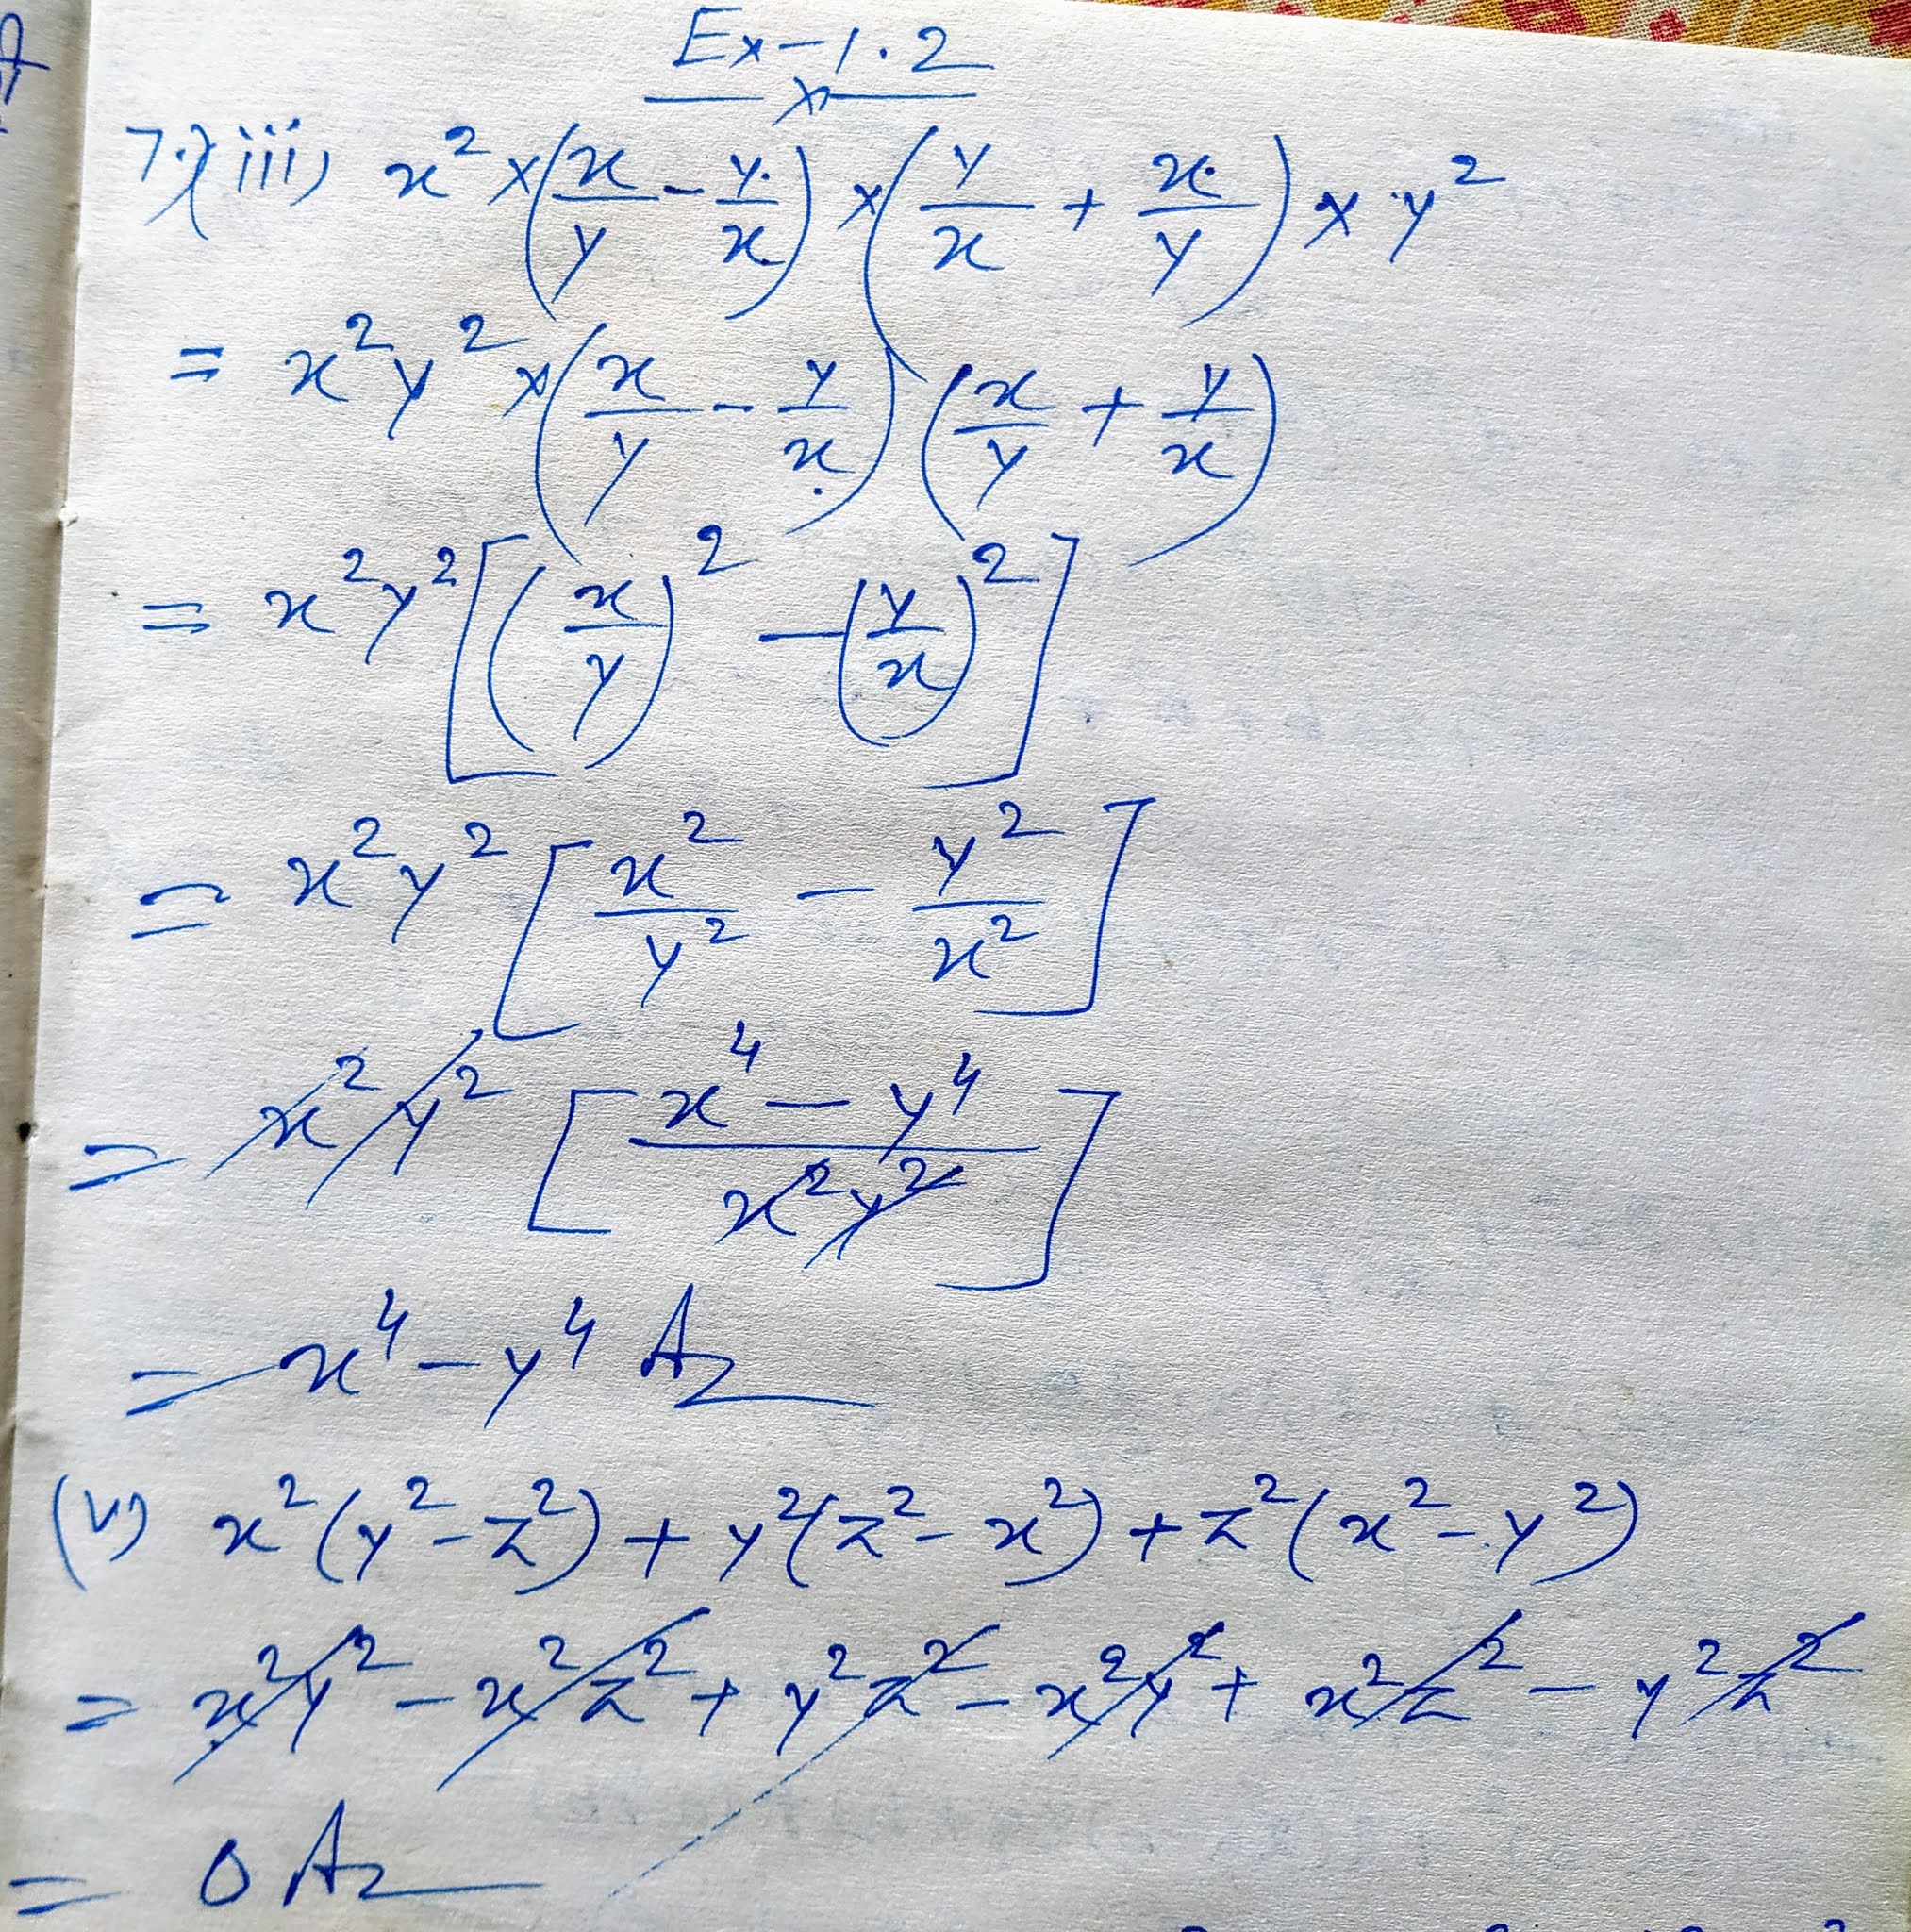 Ex-1.2
7.(iii) x² × (x/y - y/x) × (y/x + x/y) × y²
= x²y² × (x/y - y/x) (x/y + y/x)
= x²y² [(x/y)² - (y/x)²]
= x²y² [x²/y² - y²/x²]
= x²y² [x⁴ - y⁴/x²y²]
= x⁴ - y⁴ As
(v) x²(y² - z²) + y²(z² - x²) + z²(x² - y²)
= x²y² - x²z² + y²z² - x²y² + x²z² - y²z²
= 0 As